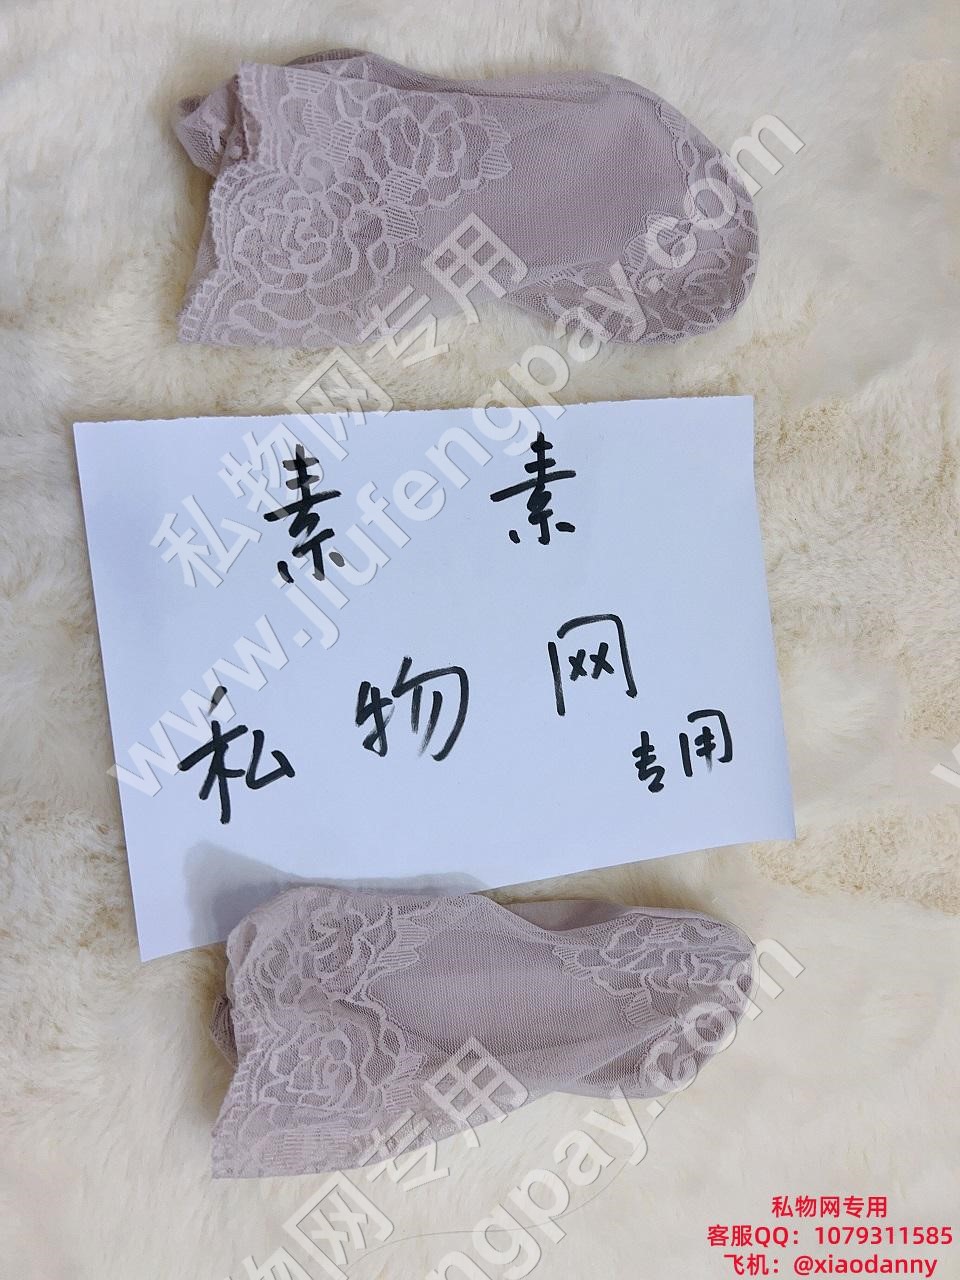 素 素
私物网
专用
私物网专用
www.jiufengpay.com
私物网专用
www.jiufengpay.com
私物网专用
客服QQ：1079311585
飞机：@xiaodanny